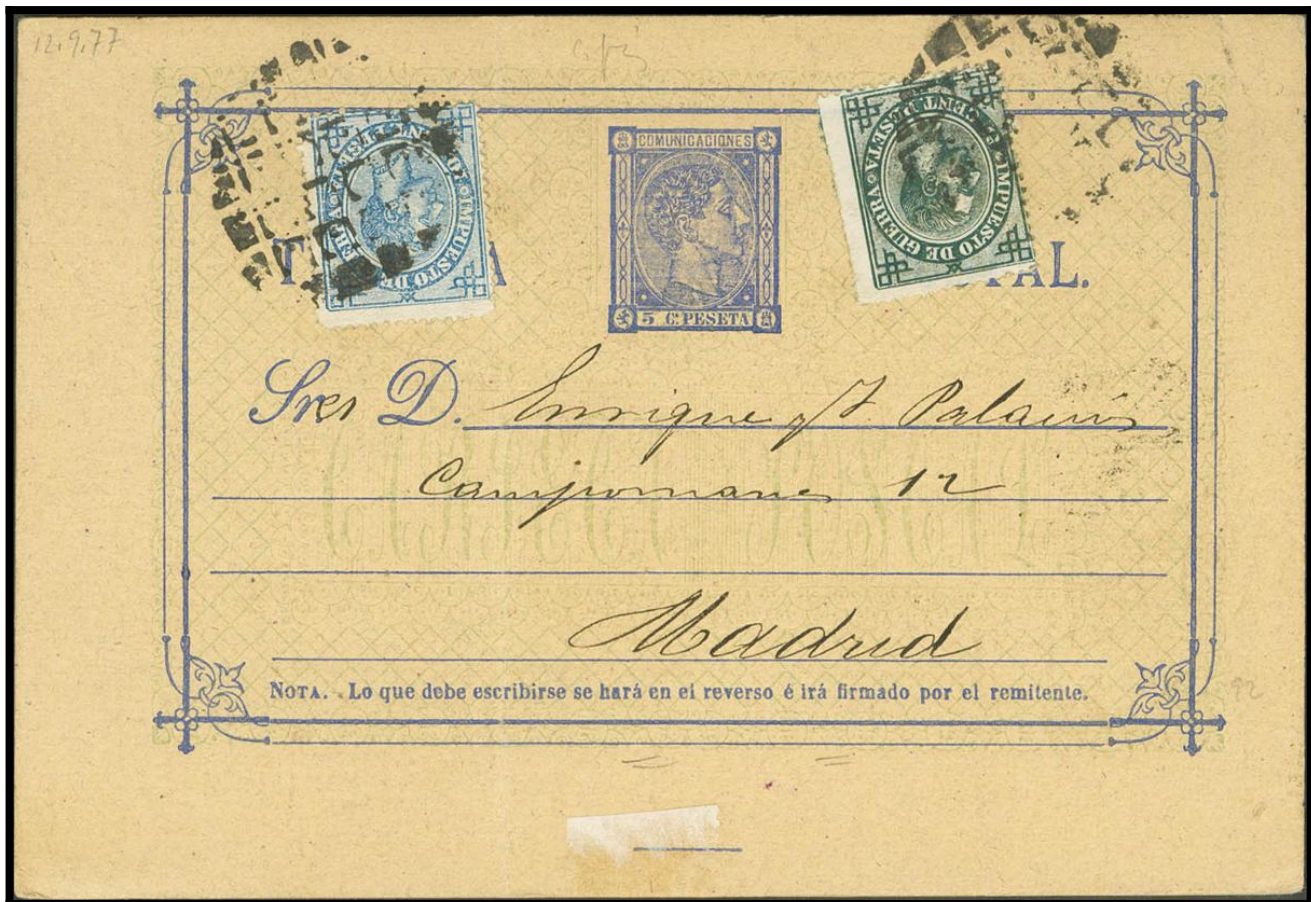 12.9.77
COMUNICACIONES
5 C. PESETA
IMPUESTO DE
IMPUESTO DE GUERRA
T A
TAL.
Sres D. Enrique y J. Palacios
Campomanes 12
Madrid
NOTA. - Lo que debe escribirse se hará en el reverso é irá firmado por el remitente.
92